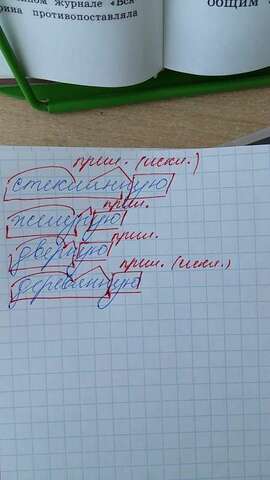 ном журнале «Вся
рина противопоставляла
общим
прил. (искл.)
стеклянную
прил.
прил.
дверную
прил. (искл.)
деревянную